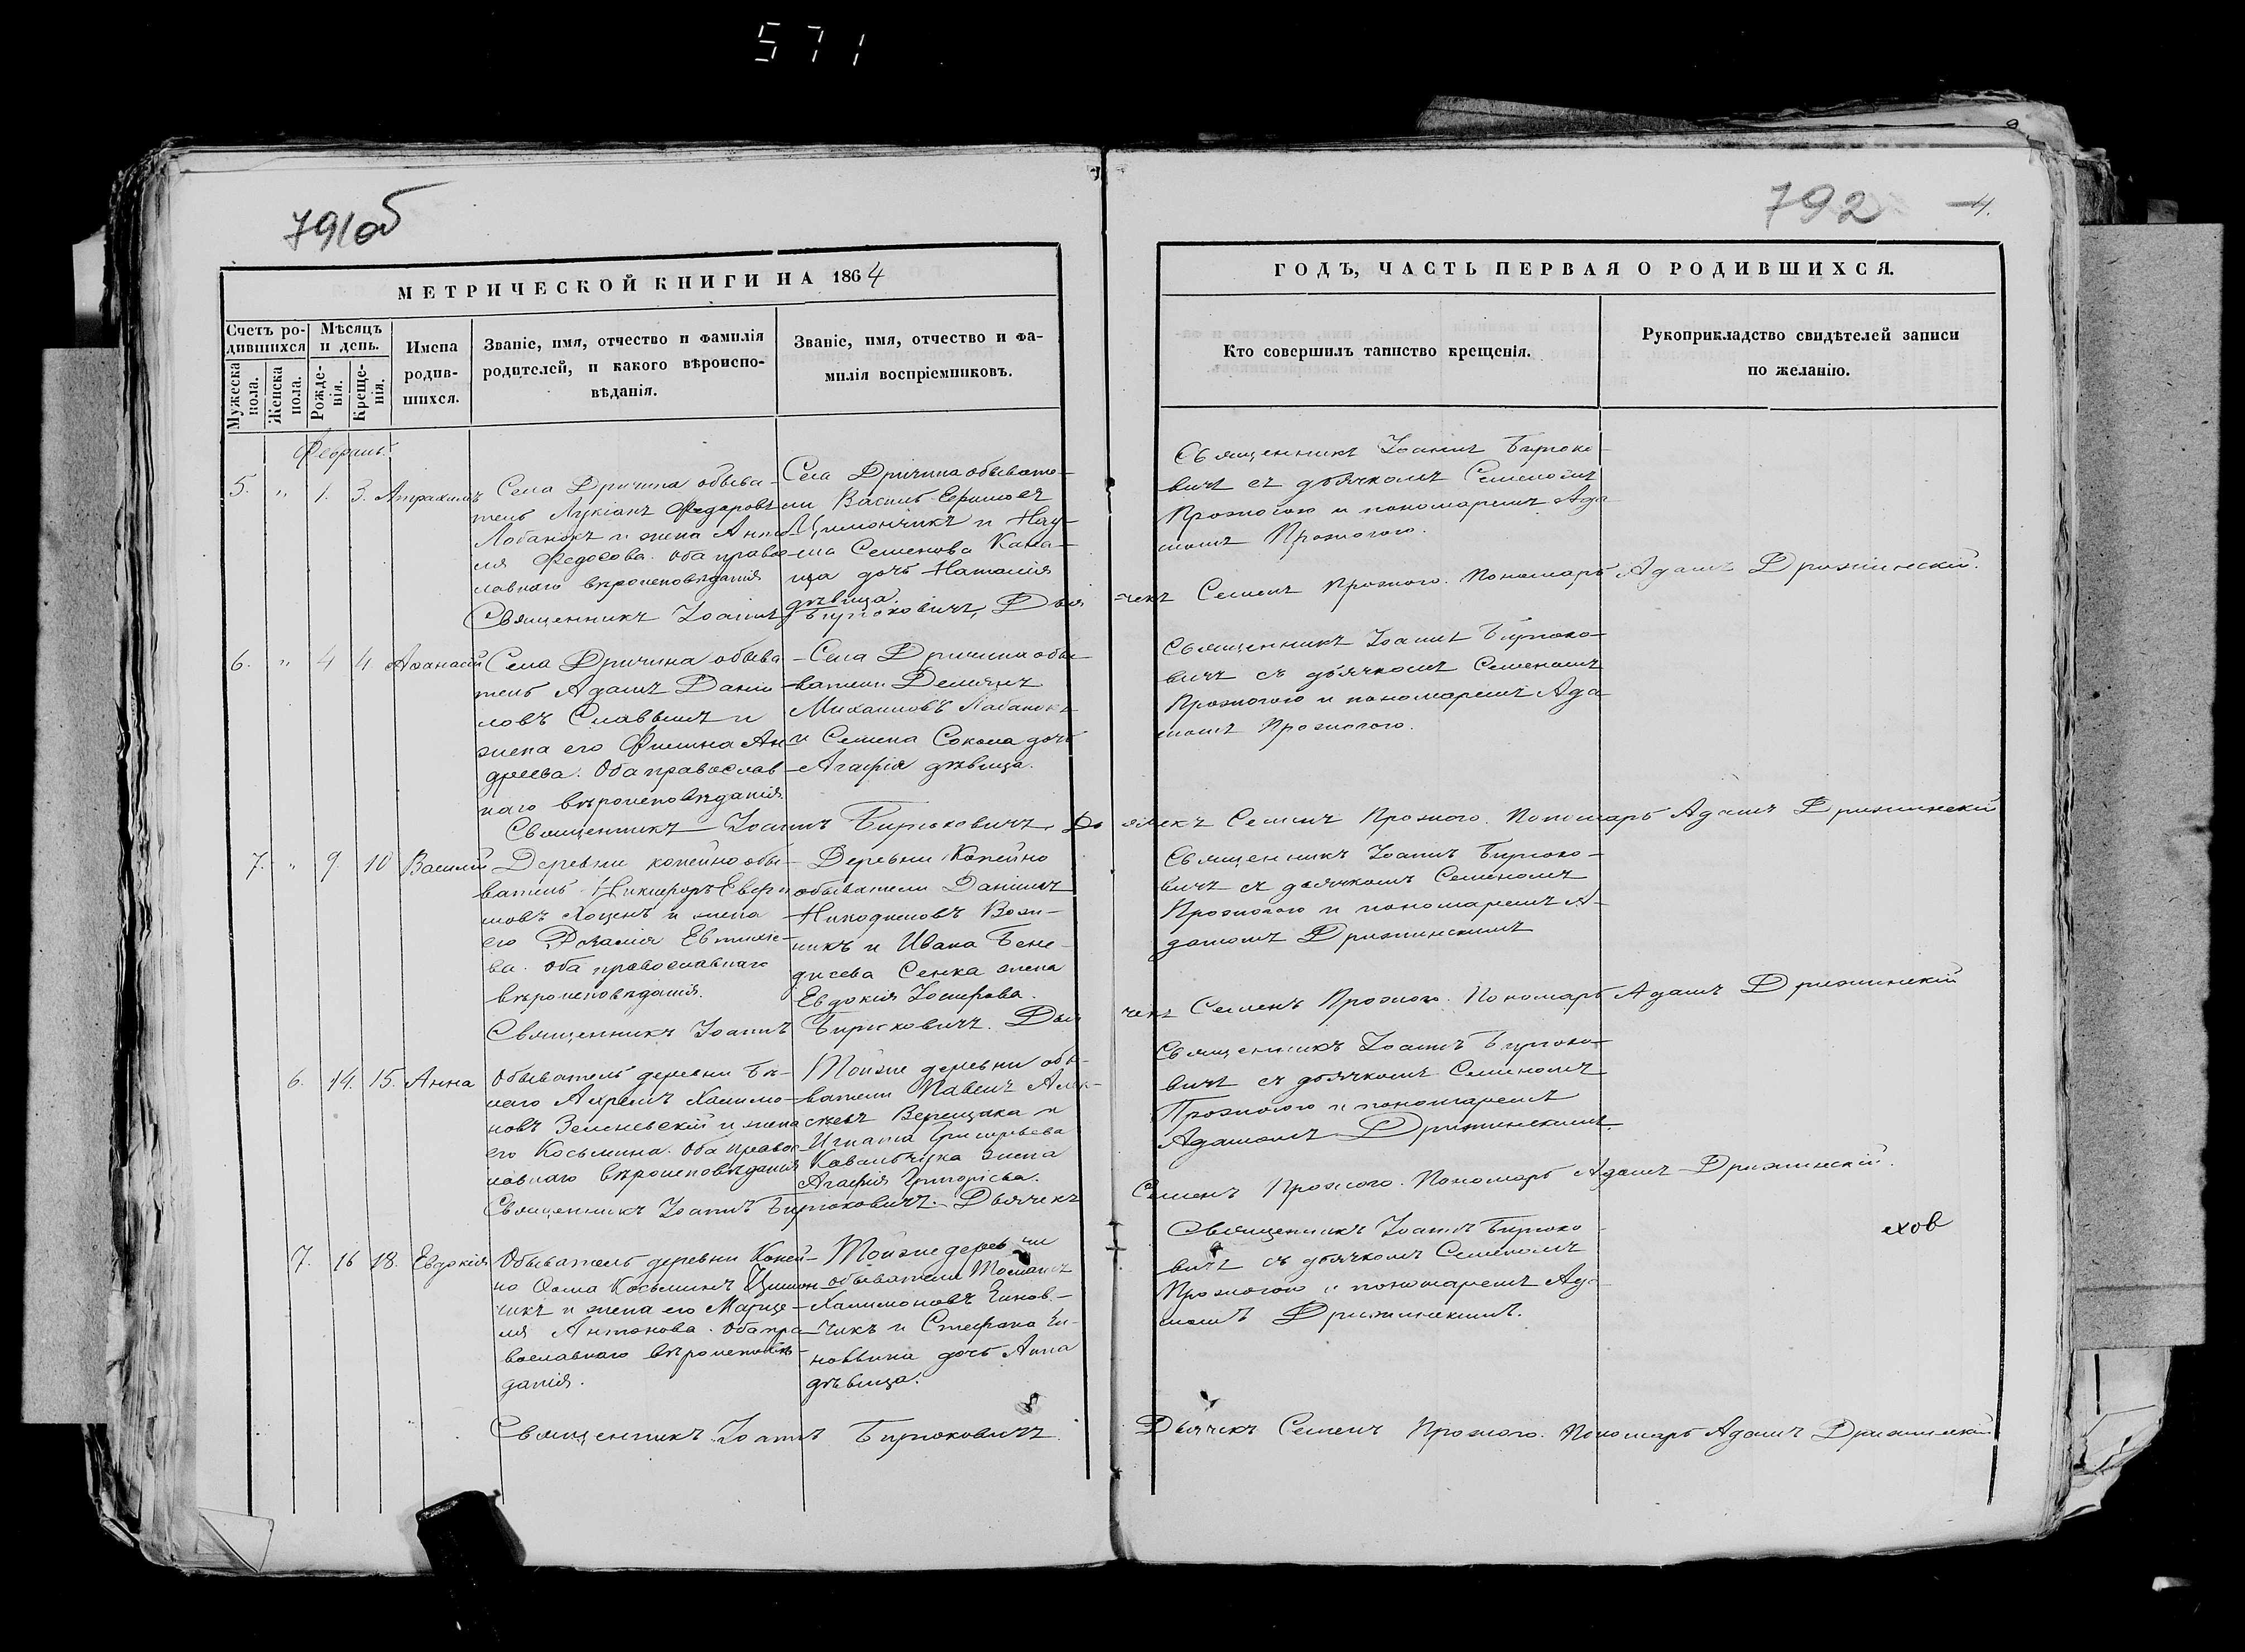 571
791об
792
4.
МЕТРИЧЕСКОЙ КНИГИ НА 1864
ГОДЪ, ЧАСТЬ ПЕРВАЯ О РОДИВШИХСЯ.
Счетъ родившихся
Мужеска пола.
Женска пола.
Мѣсяцъ и день.
Рожденія.
Крещенія.
Имена родившихся.
Званіе, имя, отчество и фамилія
родителей, и какого вѣроиспо-
вѣданія.
Званіе, имя, отчество и фа-
милія воспріемниковъ.
Кто совершилъ таинство крещенія.
Рукоприкладство свидѣтелей записи
по желанію.
5. " 1. 3.
Села Дричина обыва-
тель Лукіанъ Федоровъ
Лобанокъ и жена
Федосова. Оба право
славнаго вѣроисповѣданія
Села Дричина обывате-
ли Василь Ефимовъ
Семенова
дочь Наталія
дѣвица.
Священникъ Іоаннъ Бирюко-
вичъ съ дьячкомъ Семеномъ
Прожогою и пономаремъ Ада
момъ Прожогою.
Священникъ Іоаннъ Бирюковичъ, Дья
=чекъ Семенъ Прожого. Пономарь Адамъ Дрижинскій.
6. " 4 4 Аѳанасій
Села Дричина обыва
тель Адамъ Дани
ловъ и
жена его Ан
дреева. Оба православ
наго вѣроисповѣданія
-Села Дричина обы-
ватели Демьянъ
Михаиловъ Лабанокъ
и Семена Сокола дочь
-Агафія дѣвица.
Священникъ Іоаннъ Бирюко-
вичъ съ дьячкомъ Семеномъ
Прожогою и пономаремъ Ада
момъ Прожогою.
Священникъ Іоаннъ Бирюковичъ. Дь
ячекъ Семенъ Прожого. Пономарь Адамъ Дрижинскій
7. " 9. 10 Василій
Деревни Копейно обы-
ватель Никифоръ Евфи
мовъ и жена
его Розалія Евтихіе-
ва. Оба православнаго
вѣроисповѣданія.
Деревни Копейно
обыватели Даніилъ
Никодимовъ
и Ивана Бене-
Сенка жена
Евдокія Іосифова.
Священникъ Іоаннъ Бирюко-
вичъ съ дьячкомъ Семеномъ
Прожогою и пономаремъ А-
дамомъ Дрижинскимъ
Священникъ Іоаннъ Бирюковичъ. Дья
чекъ Семенъ Прожого. Пономарь Адамъ Дрижинскій
6. 14. 15. Анна
Обыватель деревни Бѣ-
лаго Халимо-
новъ Зеленевскій и жена
его Косьмина. Оба право-
славнаго вѣроисповѣданія
Тойже деревни обы-
ватели Павелъ Алек-
сѣевъ Верещака и
Игната Григорьева
Ковальчука жена
Агафія Григоріева.
Священникъ Іоаннъ Бирюко-
вичъ съ дьячкомъ Семеномъ
Прожогою и пономаремъ
Адамомъ Дрижинскимъ.
Священникъ Іоаннъ Бирюковичъ. Дьячекъ
Семенъ Прожого. Пономарь Адамъ Дрижинскій.
7. 16 18. Евдокія
Обыватель деревни Копей-
но Ѳома Косьминъ Цимон-
чикъ и жена его Марце-
ля Антонова. Оба пра-
вославнаго вѣроисповѣ-
данія.
Тойже деревни
обыватели
Халимоновъ
чикъ и Стефана
дочь Анна
дѣвица.
Священникъ Іоаннъ Бирюко
вичъ съ дьячкомъ Семеномъ
Прожогою и пономаремъ Ада-
момъ Дрижинскимъ.
ехов
Священникъ Іоаннъ Бирюковичъ
Дьячекъ Семенъ Прожого. Пономарь Адамъ Дрижинскій